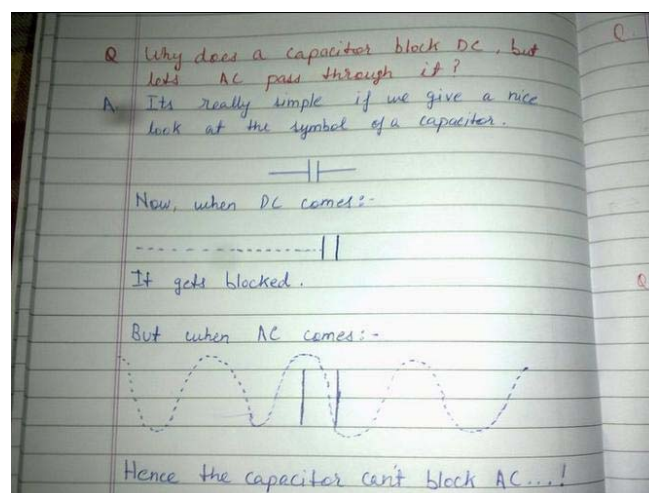 Q Why does a capacitor block DC, but
lets AC pass through it?
A. Its really simple if we give a nice
look at the symbol of a capacitor.
Now, when DC comes:-
It gets blocked.
But when AC comes:-
Hence the capacitor can't block AC...!
Q.
Q